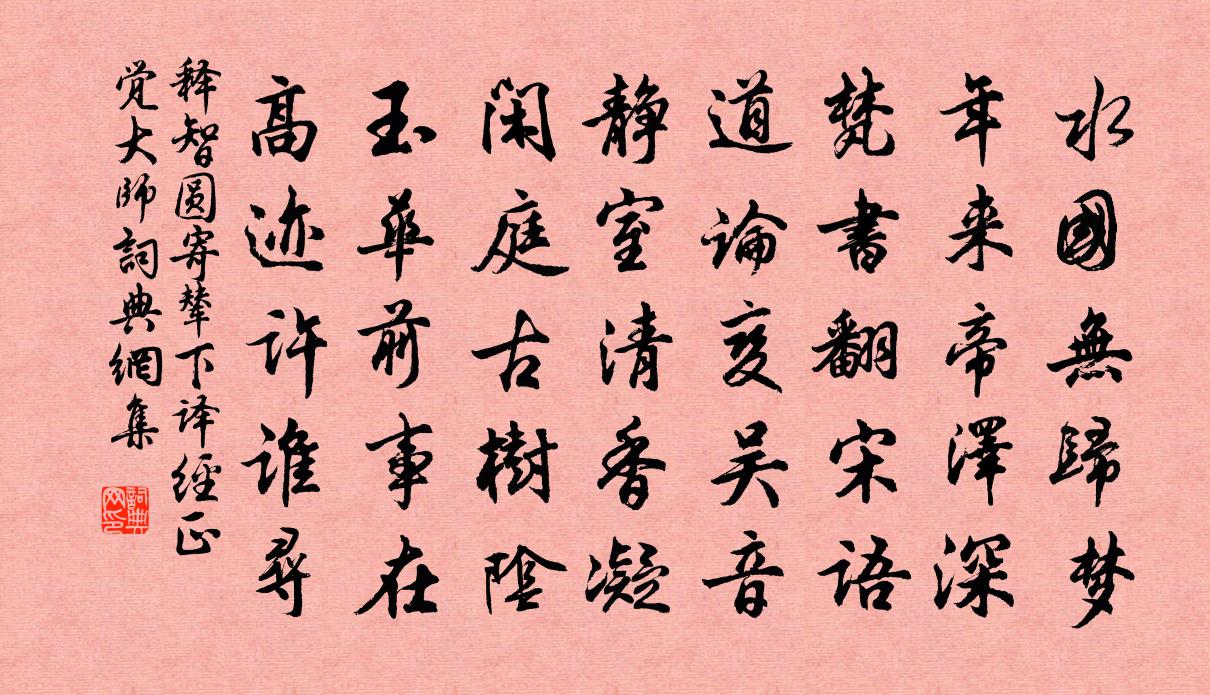 水國無歸梦
年来帝澤深
梵書翻宋語
道論变吴音
靜室清香凝
閑庭古樹陰
玉華前事在
高迹許谁尋
释智圆寄辇下译經正
觉大師詞典網集
詞典
网印